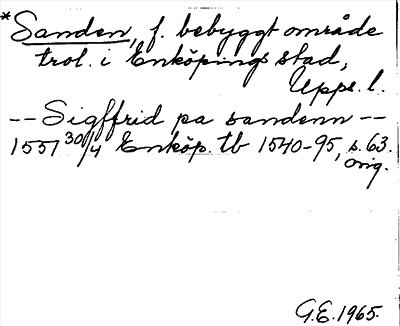 *Sanden, f. bebyggt område
trol. i Enköpings stad,
Upps. l.
-- Sigffrid pa sandenn --
1551 30/4 Enköp. tb 1540-95, s. 63.
orig.
G.E. 1965.